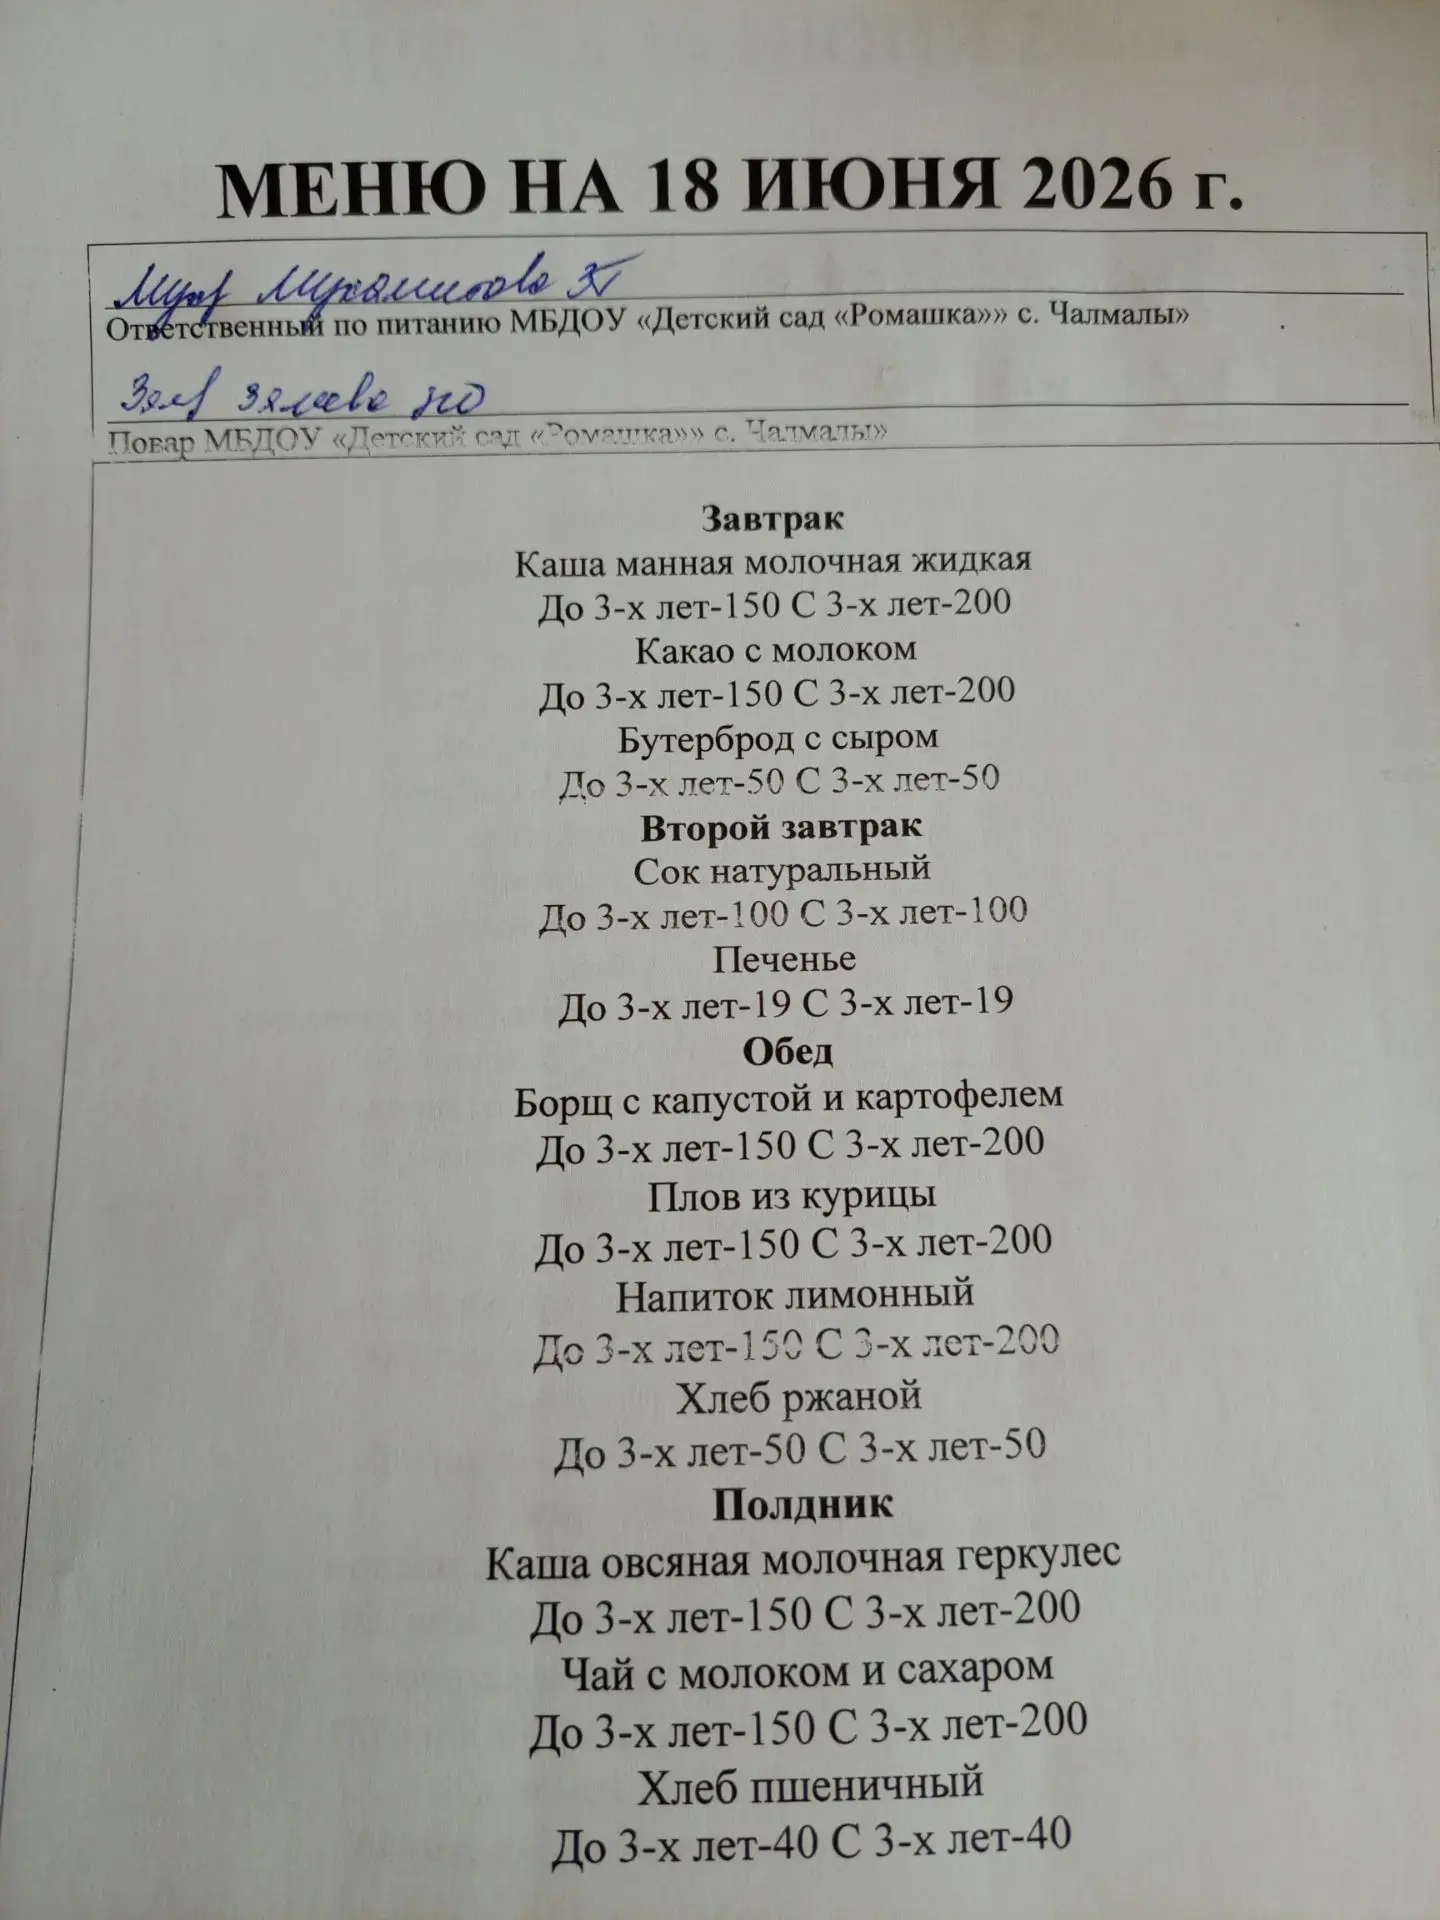 МЕНЮ НА 18 ИЮНЯ 2026 г.
Мухаметова
Ответственный по питанию МБДОУ «Детский сад «Ромашка»» с. Чалмалы»
Повар МБДОУ «Детский сад «Ромашка»» с. Чалмалы»
Завтрак
Каша манная молочная жидкая
До 3-х лет-150 С 3-х лет-200
Какао с молоком
До 3-х лет-150 С 3-х лет-200
Бутерброд с сыром
До 3-х лет-50 С 3-х лет-50
Второй завтрак
Сок натуральный
До 3-х лет-100 С 3-х лет-100
Печенье
До 3-х лет-19 С 3-х лет-19
Обед
Борщ с капустой и картофелем
До 3-х лет-150 С 3-х лет-200
Плов из курицы
До 3-х лет-150 С 3-х лет-200
Напиток лимонный
До 3-х лет-150 С 3-х лет-200
Хлеб ржаной
До 3-х лет-50 С 3-х лет-50
Полдник
Каша овсяная молочная геркулес
До 3-х лет-150 С 3-х лет-200
Чай с молоком и сахаром
До 3-х лет-150 С 3-х лет-200
Хлеб пшеничный
До 3-х лет-40 С 3-х лет-40